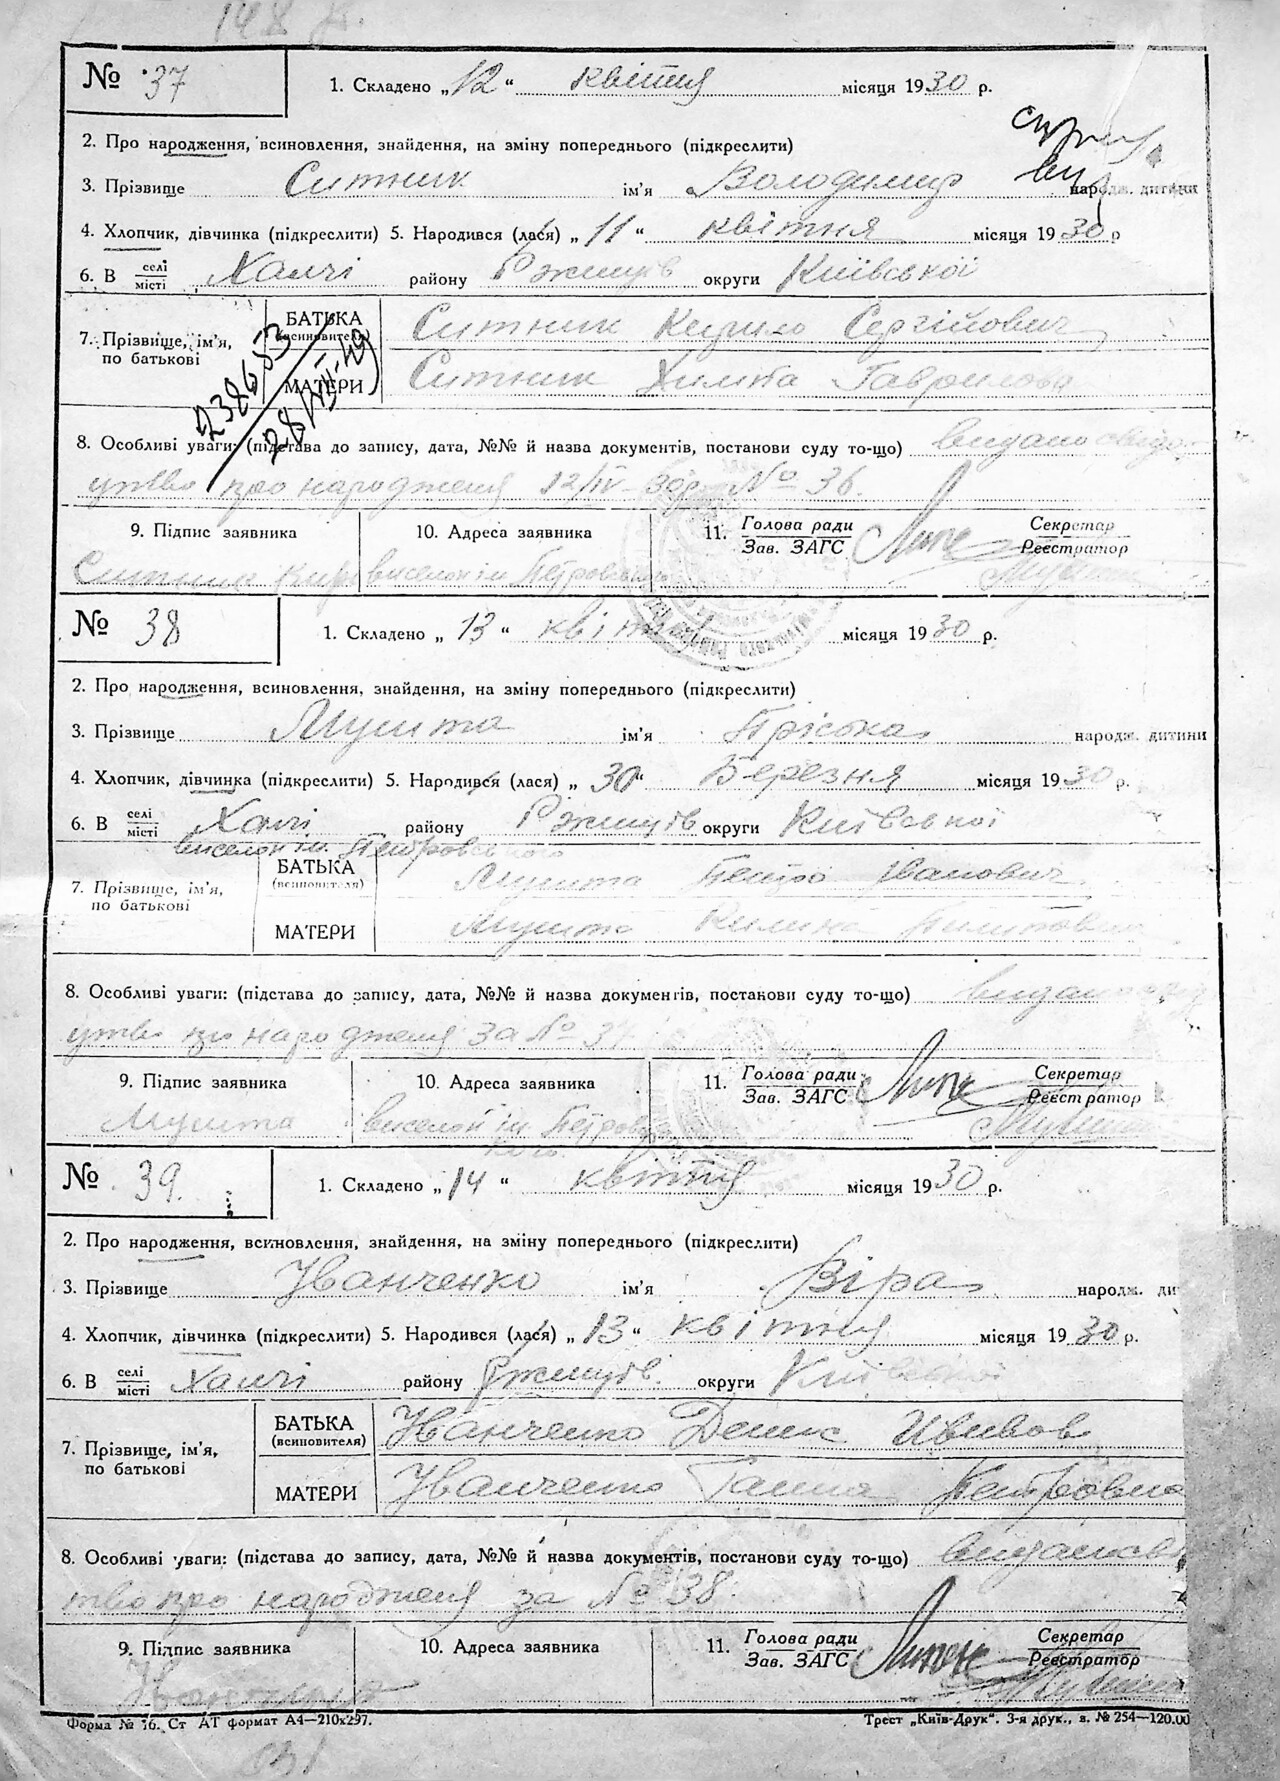 148
№ 37 1. Складено „12“ квітня місяця 1930 р.
2. Про народження, всиновлення, знайдення, на зміну попереднього (підкреслити)
3. Прізвище Ситник ім’я Володимир народж. дитини
4. Хлопчик, дівчинка (підкреслити) 5. Народився (лася) „11“ квітня місяця 1930 р
6. В селі Халчі району Ржищів округи Київської
місті
7. Прізвище, ім’я, по батькові БАТЬКА (всиновителя) Ситник Кирило Сергійович
МАТЕРИ Ситник Химка Гаврилова
238653
28/VII-49
8. Особливі уваги: (підстава до запису, дата, №№ й назва документів, постанови суду то-що) видано свідо
цтво про народженя 12/IV-30р. № 36.
9. Підпис заявника 10. Адреса заявника 11. Голова ради Секретар
Зав. ЗАГС Реєстратор
Ситник Кир виселок ім Петровського
№ 38 1. Складено „13“ квітня місяця 1930 р.
2. Про народження, всиновлення, знайдення, на зміну попереднього (підкреслити)
3. Прізвище Мушта ім’я Пріська народж. дитини
4. Хлопчик, дівчинка (підкреслити) 5. Народився (лася) „30“ Березня місяця 1930 р.
6. В селі Халчі району Ржищів округи Київської
місті виселок ім. Петровського
7. Прізвище, ім’я, по батькові БАТЬКА (всиновителя) Мушта Петро Іванович
МАТЕРИ Мушта Килина
8. Особливі уваги: (підстава до запису, дата, №№ й назва документів, постанови суду то-що) видано
цтво про народженя за № 37
9. Підпис заявника 10. Адреса заявника 11. Голова ради Секретар
Зав. ЗАГС Реєстратор
Мушта виселок ім Петровського
№ 39. 1. Складено „14“ квітня місяця 1930 р.
2. Про народження, всиновлення, знайдення, на зміну попереднього (підкреслити)
3. Прізвище Іванченко ім’я Віра народж. ди
4. Хлопчик, дівчинка (підкреслити) 5. Народився (лася) „13“ квітня місяця 1930 р.
6. В селі Халчі району Ржищів. округи Київської
місті
7. Прізвище, ім’я, по батькові БАТЬКА (всиновителя) Іванченко Денис
МАТЕРИ Іванченко Ганна Петровна
8. Особливі уваги: (підстава до запису, дата, №№ й назва документів, постанови суду то-що)
тво про народженя за № 38.
9. Підпис заявника 10. Адреса заявника 11. Голова ради Секретар
Зав. ЗАГС Реєстратор
Форма № 16. Ст АТ формат А4—210х297. Трест „Київ-Друк“. 3-я друк., в. № 254—120.00